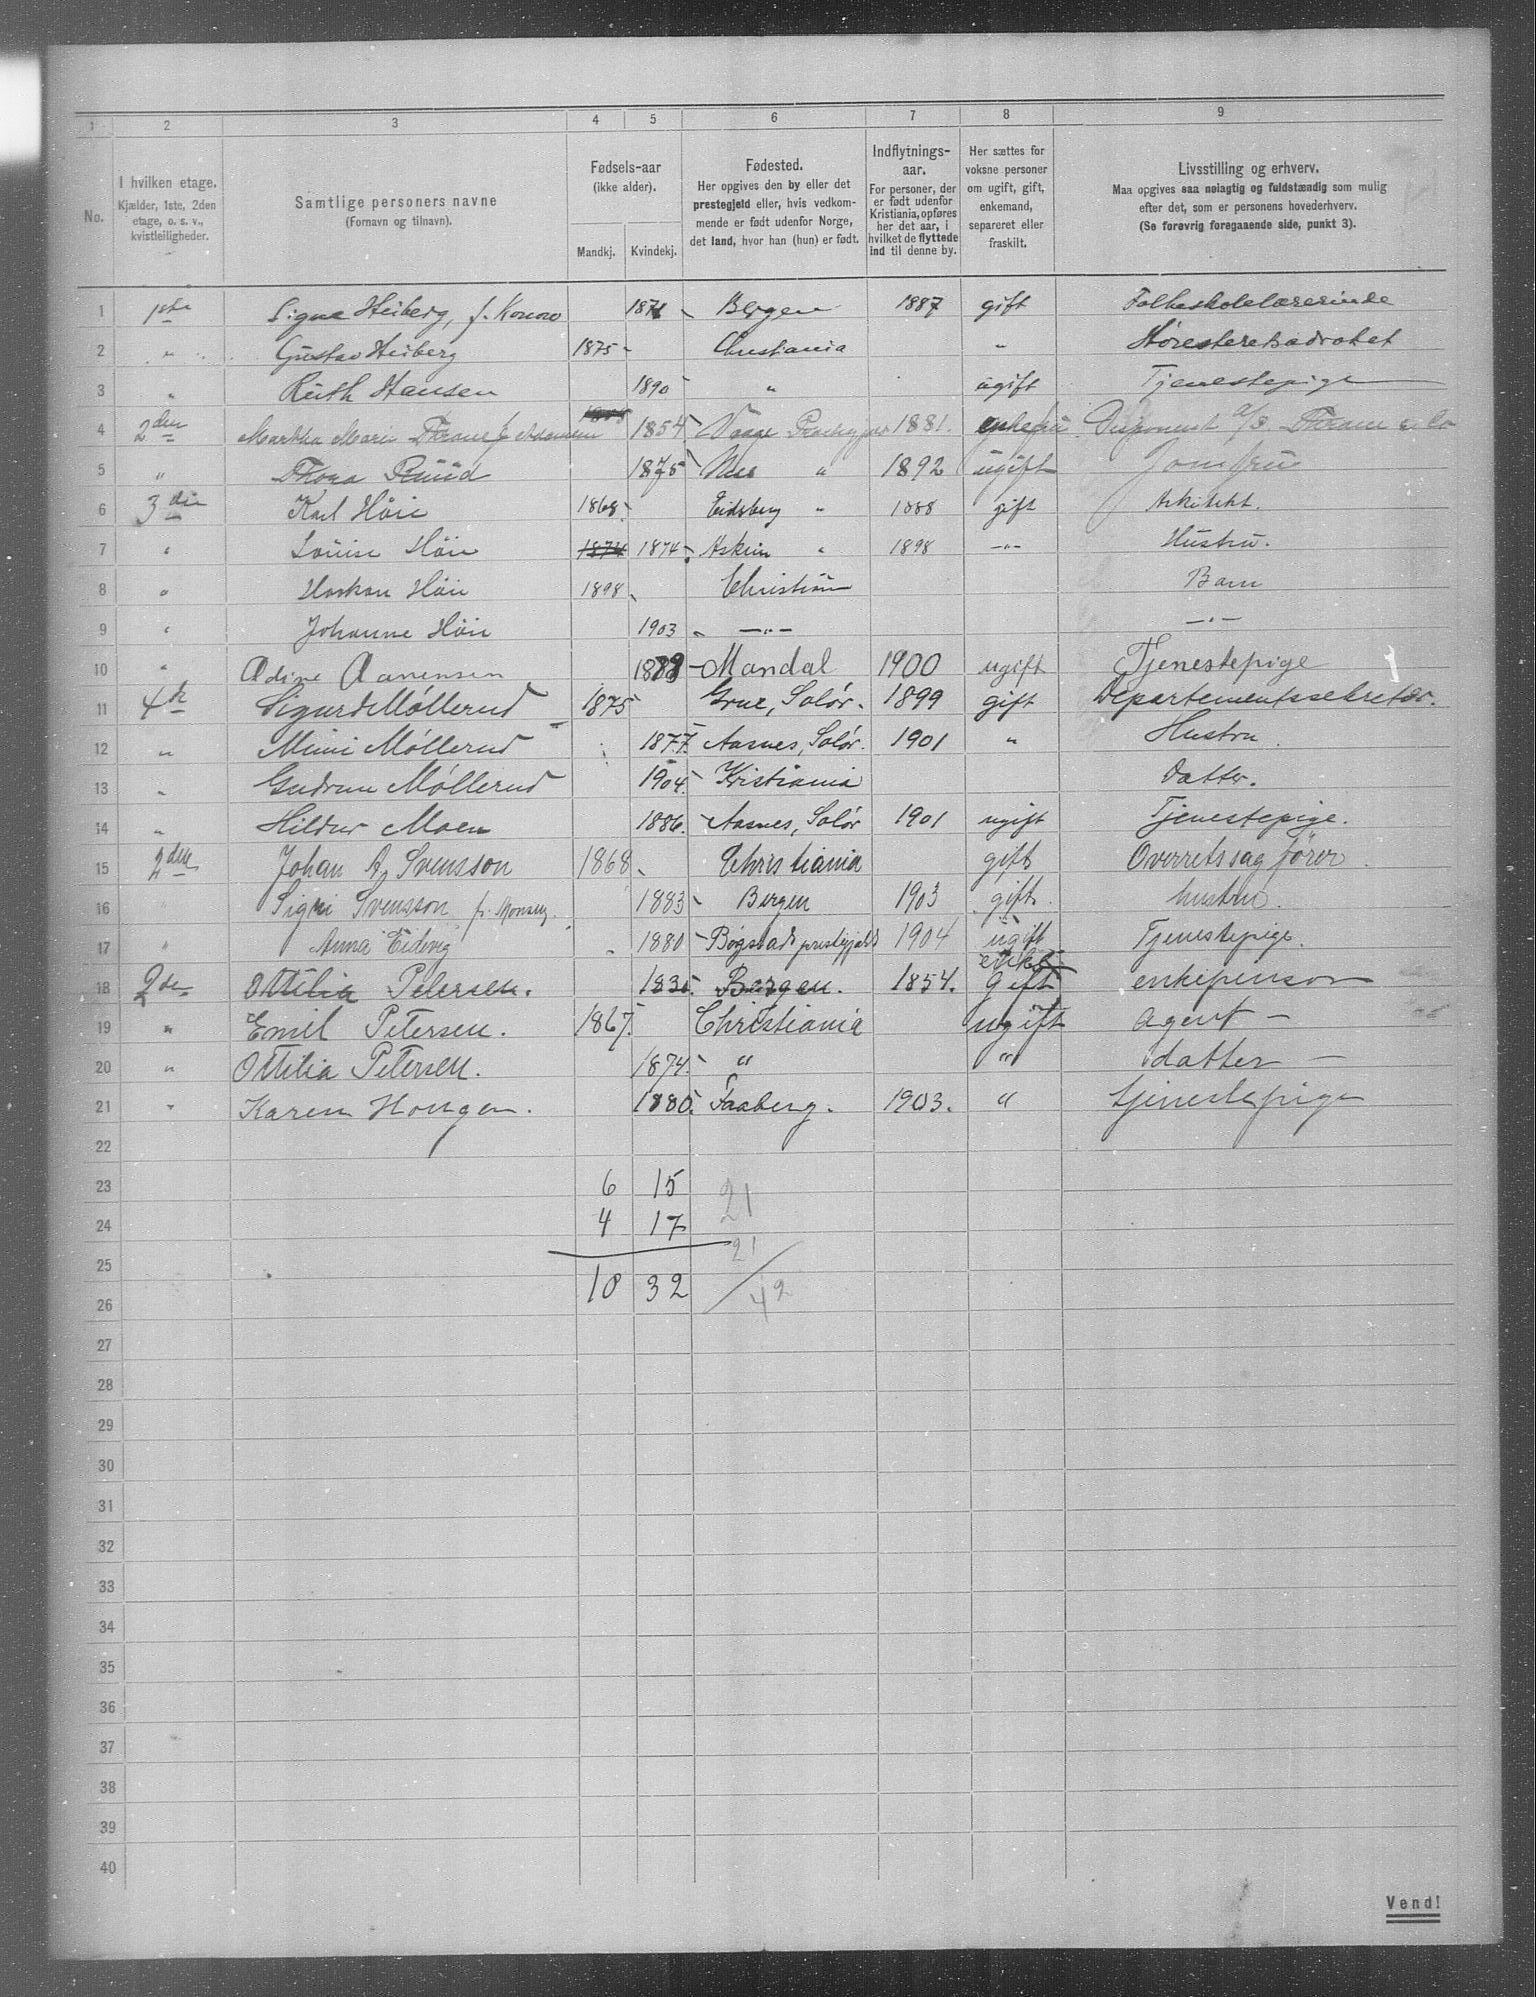 1 2 3 4 5 6 7 8 9
No.
I hvilken etage.
Kjælder, 1ste, 2den
etage, o. s. v.,
kvistleiligheder.
Samtlige personers navne
(Fornavn og tilnavn).
Fødsels-aar
(ikke alder).
Mandkj. Kvindekj.
Fødested.
Her opgives den by eller det
prestegjeld eller, hvis vedkom-
mende er født udenfor Norge,
det land, hvor han (hun) er født.
Indflytnings-
aar.
For personer, der
er født udenfor
Kristiania, opføres
her det aar, i
hvilket de flyttede
ind til denne by.
Her sættes for
voksne personer
om ugift, gift,
enkemand,
separeret eller
fraskilt.
Livsstilling og erhverv.
Maa opgives saa nøiagtig og fuldstændig som mulig
efter det, som er personens hovederhverv.
(Se forøvrig foregaaende side, punkt 3).
1 1ste Signe Heiberg, f. Konow 1871 Bergen 1887 gift Folkeskolelærerinde
2 " Gustav Heiberg 1875 Christiania " Høiesteretsadvokat
3 " Ruth Hansen 1890 " ugift Tjenestepige
4 2den Martha Marie Thrane f. 1854 Vaage 1881. enkefru Disponent A/S. Thrane & Co
5 " Thora Ruud 1875 Næs " 1892 ugift Jomfru
6 3die Karl Høie 1868. Eidsberg " 1888 gift Arkitekt.
7 " Louise Høie 1874 1874. Askim " 1898 -"- Hustru.
8 " Haakon Høie 1898 Christiania Barn
9 " Johanne Høie 1903 -"- -"-
10 " Adine Aanensen 1889 Mandal 1900 ugift Tjenestepige
11 4de Sigurd Møllerud 1875 Grue, Solør. 1899 gift Departementssekretær.
12 " Mimi Møllerud 1877. Aasnes, Solør. 1901 " Hustru.
13 " Gudrun Møllerud 1904. Kristiania Datter.
14 " Hildur Moen 1886. Aasnes, Solør 1901 ugift Tjenestepige.
15 2den Johan A. Svensson 1868. Christiania gift Overretssagfører.
16 " Signi Svensson f. Monsen. 1883 Bergen 1903 gift. hustru.
17 " Anna Eidevig 1880 prestegjeld 1904 ugift Tjenestepige.
18 2de Ottilia Petersen. 1830. Bergen. 1854. Gift enke enkepension
19 " Emil Petersen. 1867. Christiania ugift agent -
20 " Ottilia Petersen. 1874. " " datter -
21 " Karen Hougen. 1880. Faaberg. 1903. " tjenestepige
22
23 6 15 21
24 4 17
25 21
26 10 32 42
27
28
29
30
31
32
33
34
35
36
37
38
39
40
Vend!